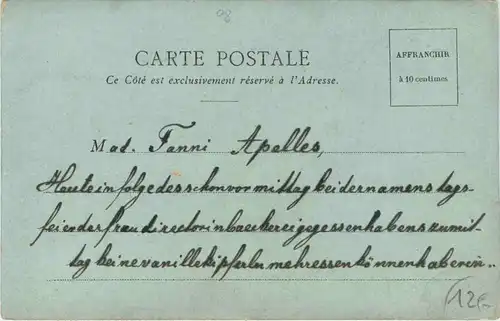 98
CARTE POSTALE
Ce Côté est exclusivement réservé à l'Adresse.
AFFRANCHIR
à 10 centimes.
Mad. Fanni Apelles,
Heuteinfolgedesschonvormittagbeidernamenstags-
feierderfraudirectorinbaeckereigegessenhabenszumit-
tagkeinevanillekipferlnmehressenkönnenhaberein..
12€-